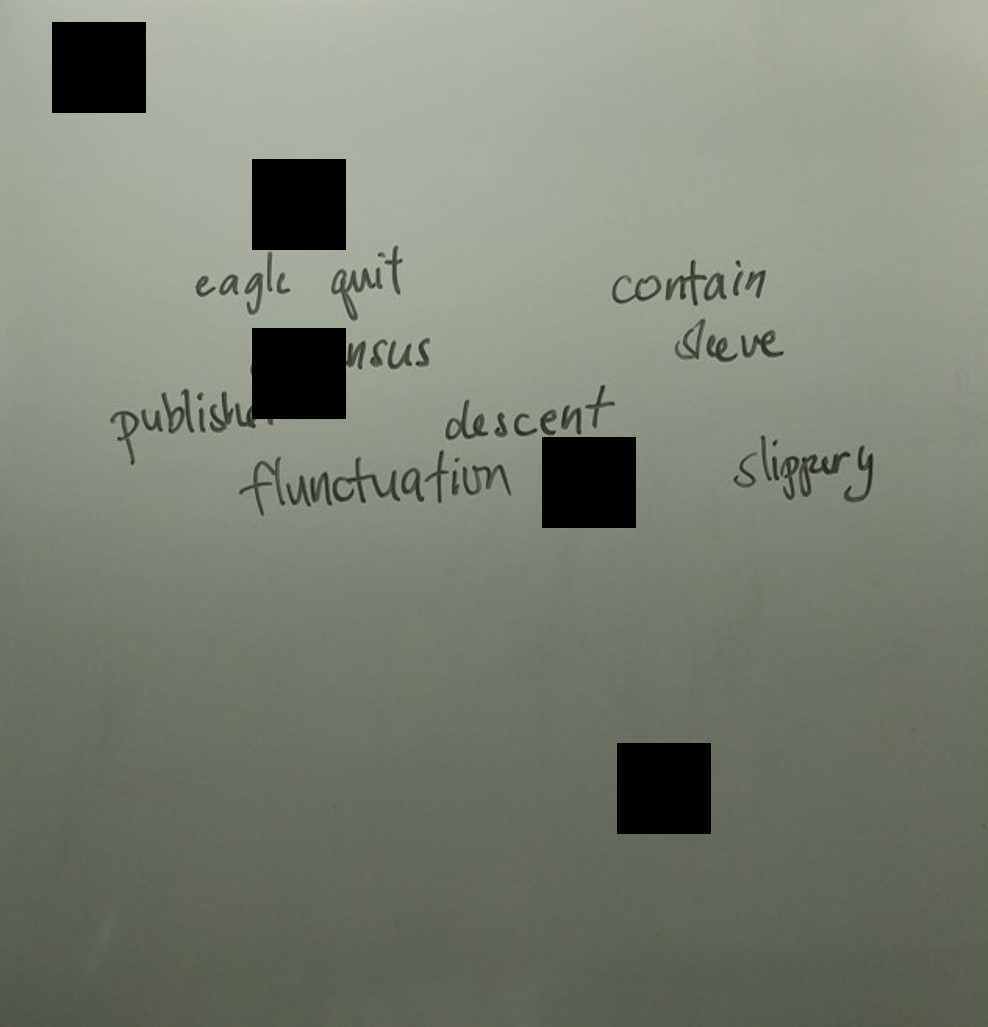 eagle quit contain
sleeve
publisher descent
flunctuation slippery